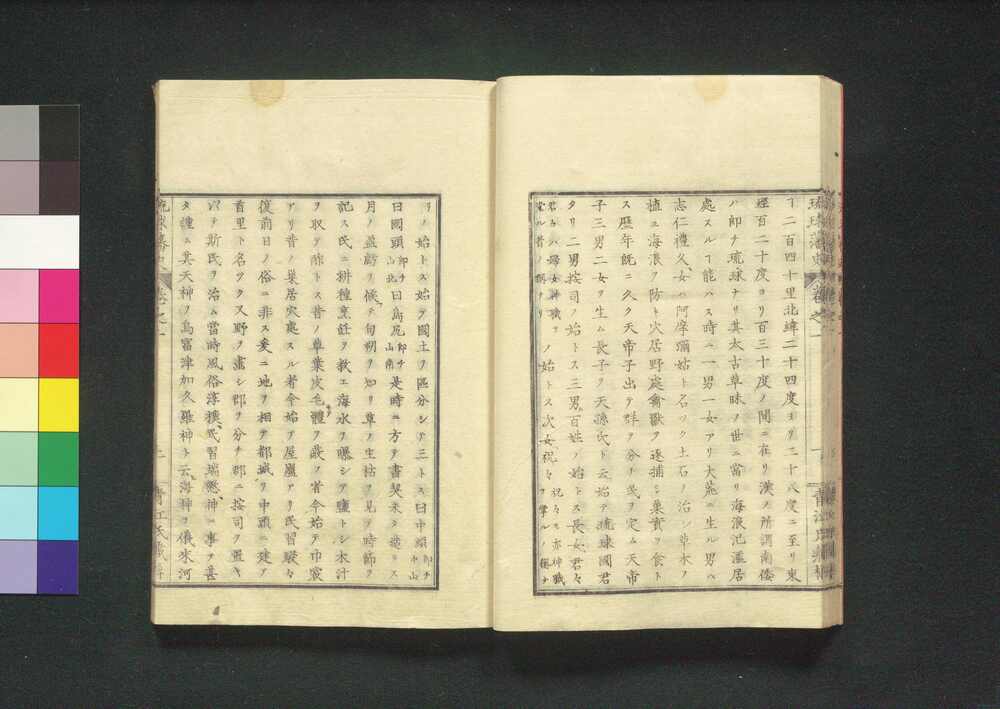 丁二百四十里北緯二十四度ヨリ二十八度ニ至リ東
經百二十度ヨリ百三十度ノ間ニ在リ漢ノ所謂南倭
ハ即チ琉球ナリ其太古草昧ノ世ニ當リ海浪氾濫居
處スル丁能ハス時ニ一男一女アリ大荒ニ生ル男ヘ
志仁禮久女ハ阿摩彌姑ト名ツク土石ノ治シ草木ヲ
植エ海浪ヲ防ト穴居野處禽獸ヲ逐捕シ菓實ヲ食ト
ス歴年既ニ久ク天帝子出ツ群ヲ分ケ民ヲ定ム天帝
子三男二女ヲ生ム長子ヲ天孫氏ト云始テ琉球國君
タリ二男按司ノ始トス三男百姓ノ始トス長女君々
君々ハ婦女神職ヲ掌ル者ノ稱ナリ
ノ始トス次女祝々
祝々ハ亦神職ヲ掌ルノ稱ナ
リノ始トス始テ國土ヲ區分シテ三トス曰中頭
即チ中山
曰國頭
即チ山北
曰島尻
即チ山南
是時ニ方テ書契未タ造ラス
月ノ盈虧ヲ候テ旬朔ヲ知リ草ノ生枯ヲ見テ時節ヲ
記ス民ニ耕種烹飪ヲ教エ海水ヲ曝シテ鹽トシ木汁
ヲ取テ酢トス昔ノ草葉皮毛體ヲ蔽フ者今始テ巾裳
アリ昔ノ巢居穴處スル者今始テ屋廬アリ民習駸々
復前日ノ俗ニ非ス爰ニ地ヲ相テ都城ヲ中頭ニ建テ
首里ト名ツク又野ヲ畫シ郡ヲ分チ郡ニ按司ヲ置キ
以テ斯民ヲ治ム當時風俗淳樸民習端愨神ニ事ヲ甚
タ謹ニ其天神ヲ島富津加久羅神ト云海神ヲ儀來河
琉球藩史
卷之一